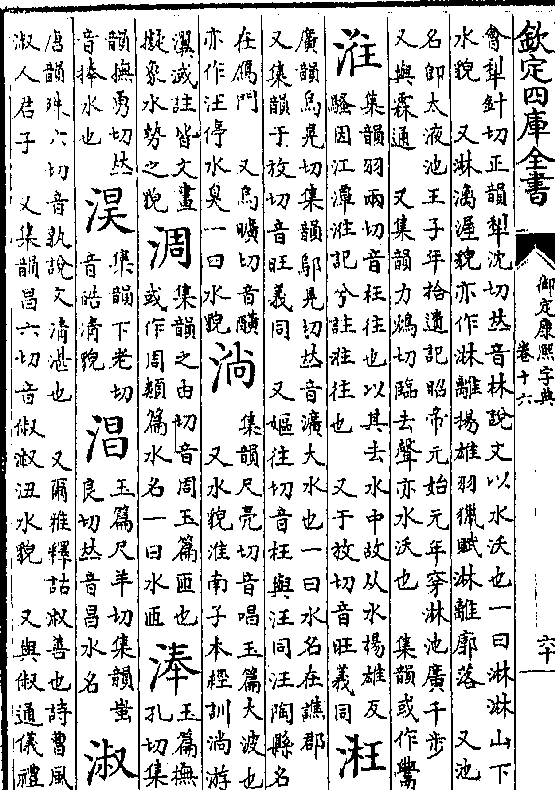 欽定四庫全書
御定康熙字典
卷十六
六十
會犁針切正韻犁沈切𠀤音林說文以水沃也一曰淋淋山下
水貌 又淋漓渥貌亦作淋離揚雄羽獵賦淋離廓落 又池
名卽太液池王子年拾遺記昭帝元始元年穿淋池廣千步
又與霖通 又集韻力鴆切臨去聲亦水沃也 集韻或作
𣶈
集韻羽兩切音枉往也以其去水中故从水揚雄反
騷因江潭𣶈記兮註𣶈往也 又于放切音旺義同
廣韻烏晃切集韻鄔晃切𠀤音瀇大水也一曰水名在譙郡
又集韻于放切音旺義同 又嫗往切音枉與汪同汪陶縣名
在鴈門 又烏曠切音
亦作汪停水臭一曰水貌
淌
集韻尺亮切音唱玉篇大波也
又水貌淮南子本經訓淌游
瀷淢註皆文畫
擬象水勢之貌
淍
集韻之由切音周玉篇匝也
或作周類篇水名一曰水匝
淎
玉篇撫
孔切集
韻撫勇切𠀤
音捧水也
淏
集韻下老切
音皓清貌
淐
玉篇尺羊切集韻蚩
良切𠀤音昌水名
淑
唐韻殊六切音孰說文清湛也 又爾雅釋詁淑善也詩曹風
淑人君子 又集韻昌六切音俶淑沑水貌 又與俶通儀禮